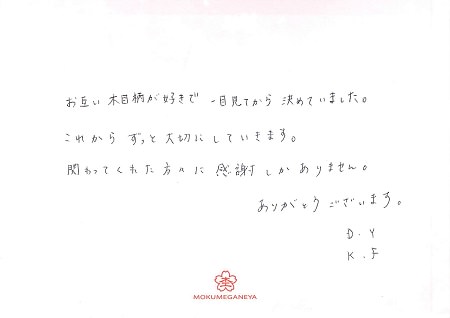 お互い 木目柄が好きで 一目見てから 決めていました。
これから ずっと大切にしていきます。
関わってくれた方々に 感謝しかありません。
ありがとうございます。
D.Y
K.F
MOKUMEGANEYA